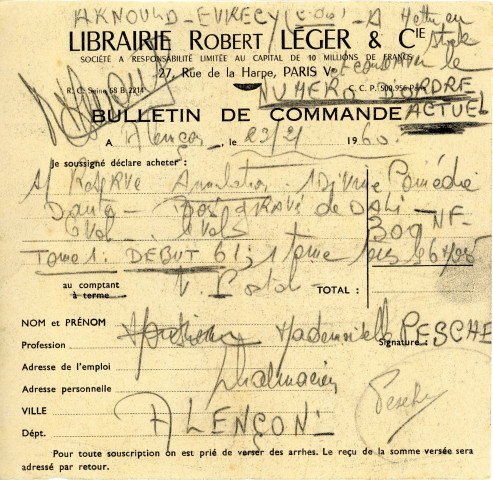 ARNOULD-EVRECY A Mettre en
LIBRAIRIE ROBERT LÉGER & CIE stock
SOCIÉTÉ A RESPONSABILITÉ LIMITÉE AU CAPITAL DE 10 MILLIONS DE FRANCS
27, Rue de la Harpe, PARIS Ve le
R. C. Seine 58 B 2214 C. C. P. 500.956 Paris
NUMERO D'ORDRE
BULLETIN DE COMMANDE ACTUEL
A Alençon, le 23/21 1960
Je soussigné déclare acheter :
s/ Réserve Annulation 1 Divine Comédie
Dante - de DALI
6 Vol. 300 NF
Tome 1: DEBUT 61; 1 tome
au comptant
à terme
TOTAL :
NOM et PRÉNOM Mademoiselle PESCHE
Profession Signature :
Adresse de l'emploi Pharmacien
Adresse personnelle Pesche
VILLE ALENÇON
Dépt.
Pour toute souscription on est prié de verser des arrhes. Le reçu de la somme versée sera
adressé par retour.